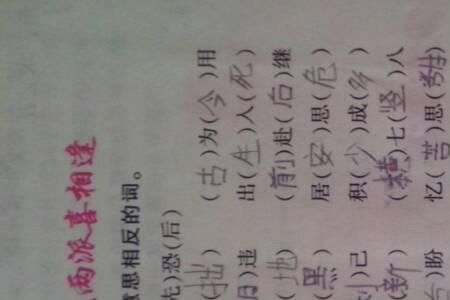 两派喜相逢
意思相反的词。
先)恐(后)
(拙) (古)为(今)用
)违 出(生)入(死)
(地) (前)赴(后)继
(黑) 居(安)思(危)
)己 积(少)成(多)
新) (横)七(竖)八
)盼 忆(苦)思(甜)